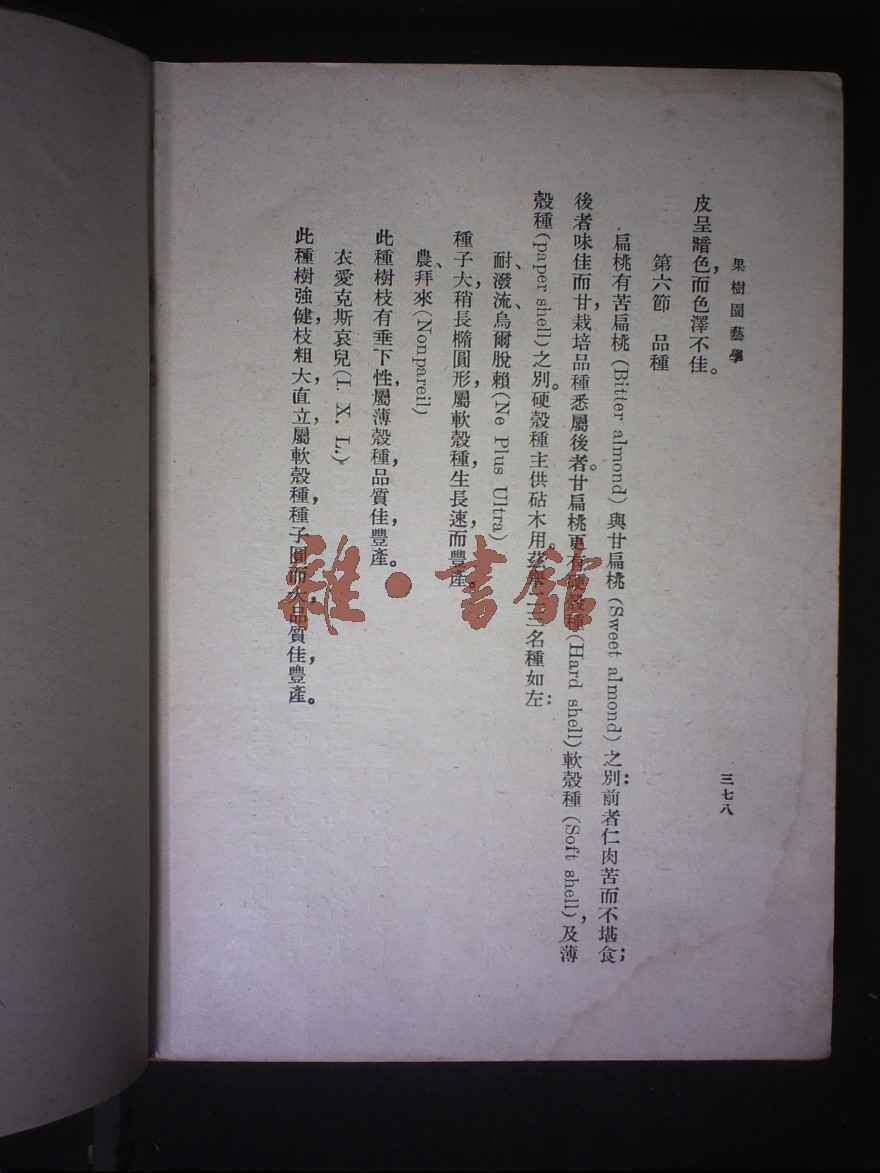 果樹園藝學
三七八
皮呈暗色，而色澤不佳。
第六節　品種
扁桃有苦扁桃(Bitter almond)與甘扁桃(Sweet almond)之別：前者仁肉苦而不堪食；
後者味佳而甘，栽培品種悉屬後者。甘扁桃更有硬殼種(Hard shell)軟殼種(Soft shell)，及薄
殼種(paper shell)之別。硬殼種主供砧木用。茲舉二三名種如左：
耐、潑流、烏爾脫賴(Ne Plus Ultra)
種子大，稍長橢圓形，屬軟殼種，生長速而豐產。
農、拜來(Nonpareil)
此種樹枝有垂下性，屬薄殼種，品質佳，豐產。
衣愛克斯哀兒(I. X. L.)
此種樹強健，枝粗大，直立，屬軟殼種，種子圓而大，品質佳，豐產。
雜·書館